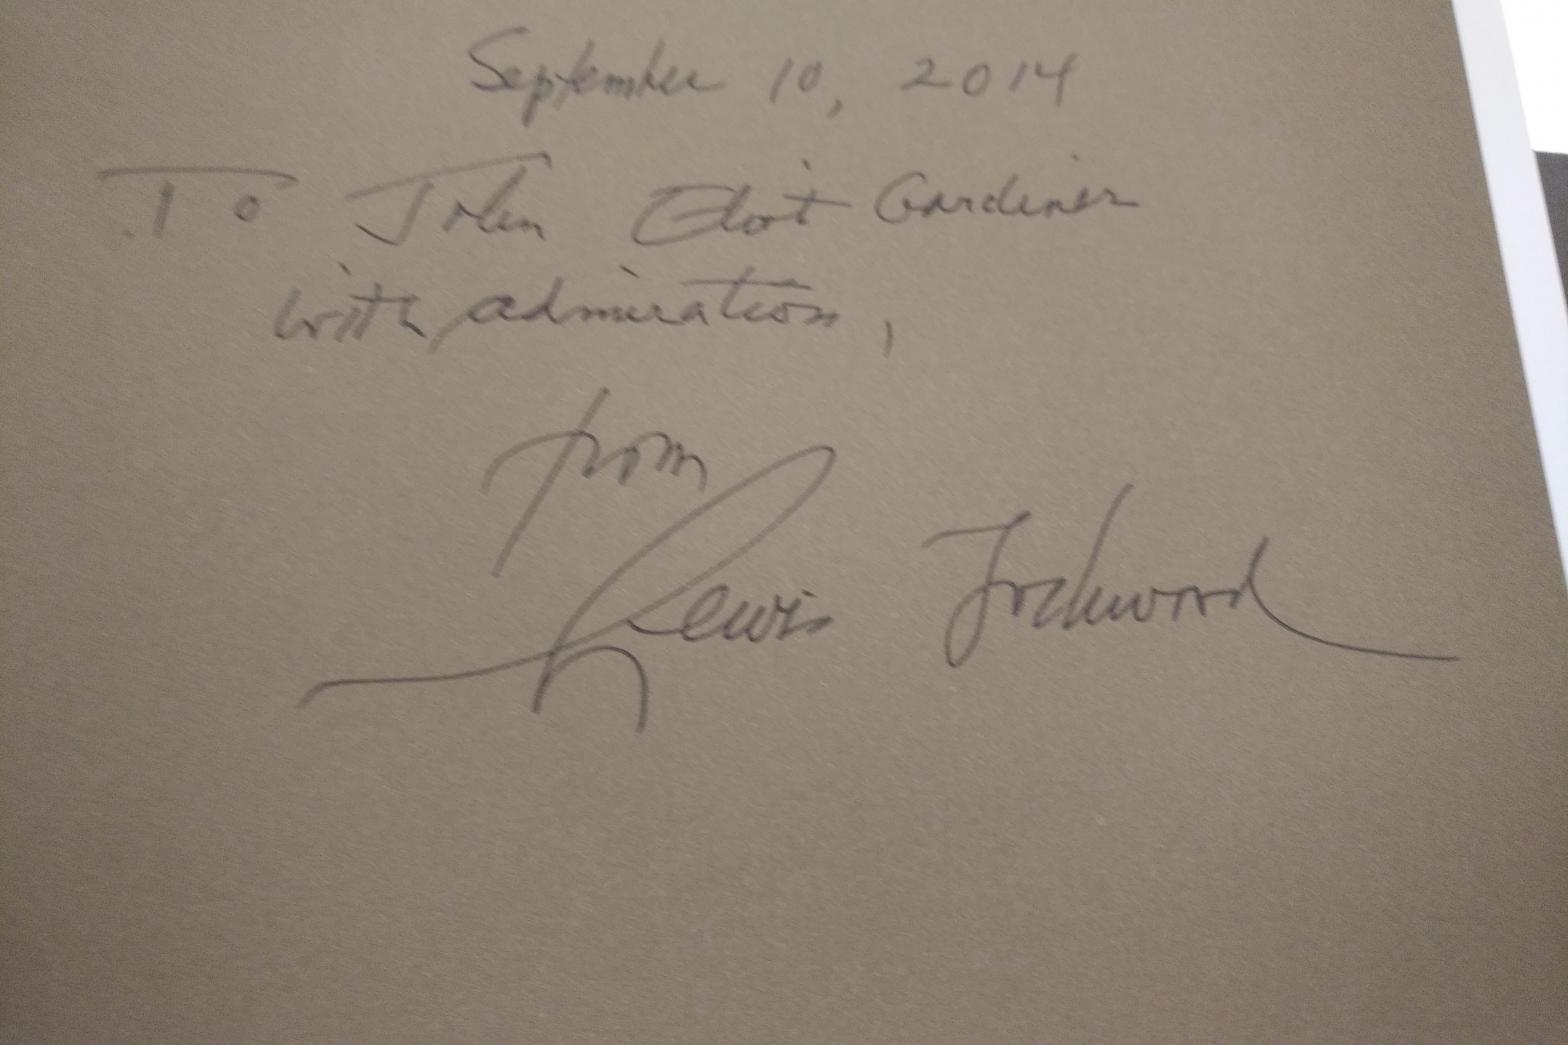 September 10, 2014
To John Eliot Gardiner
with admiration,
from
Lewis Lockwood